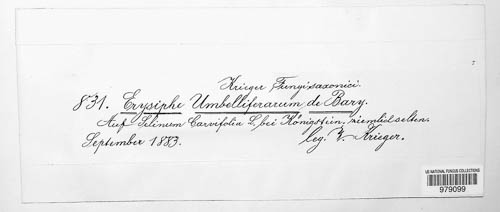 Krieger Fungi saxonici.
831. Erysiphe Umbelliferarum de Bary.
Auf Selinum Carvifolia L, bei Königstein, ziemlich selten.
September 1883. leg. W. Krieger.
US NATIONAL FUNGUS COLLECTIONS
979099